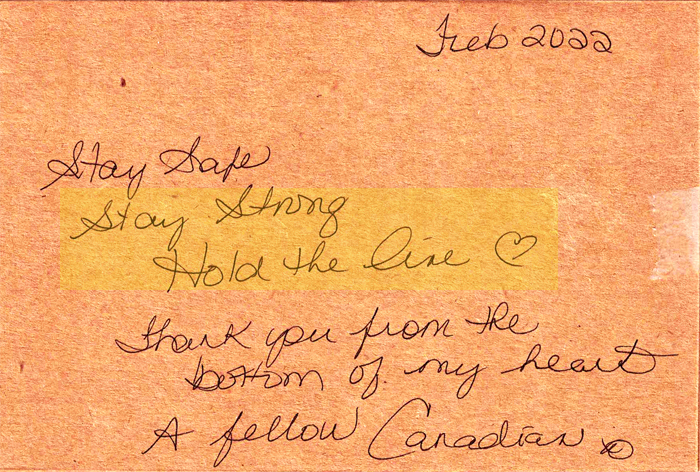 Feb 2022
Stay Safe
Stay Strong
Hold the line ♡
thank you from the
bottom of my heart
A fellow Canadian